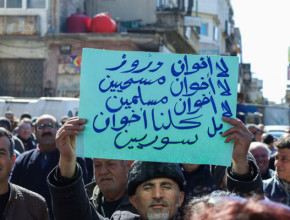 لا أخوان دروز
لا أخوان مسيحيين
لا أخوان مسلمين
بل كلنا أخوان
سوريين